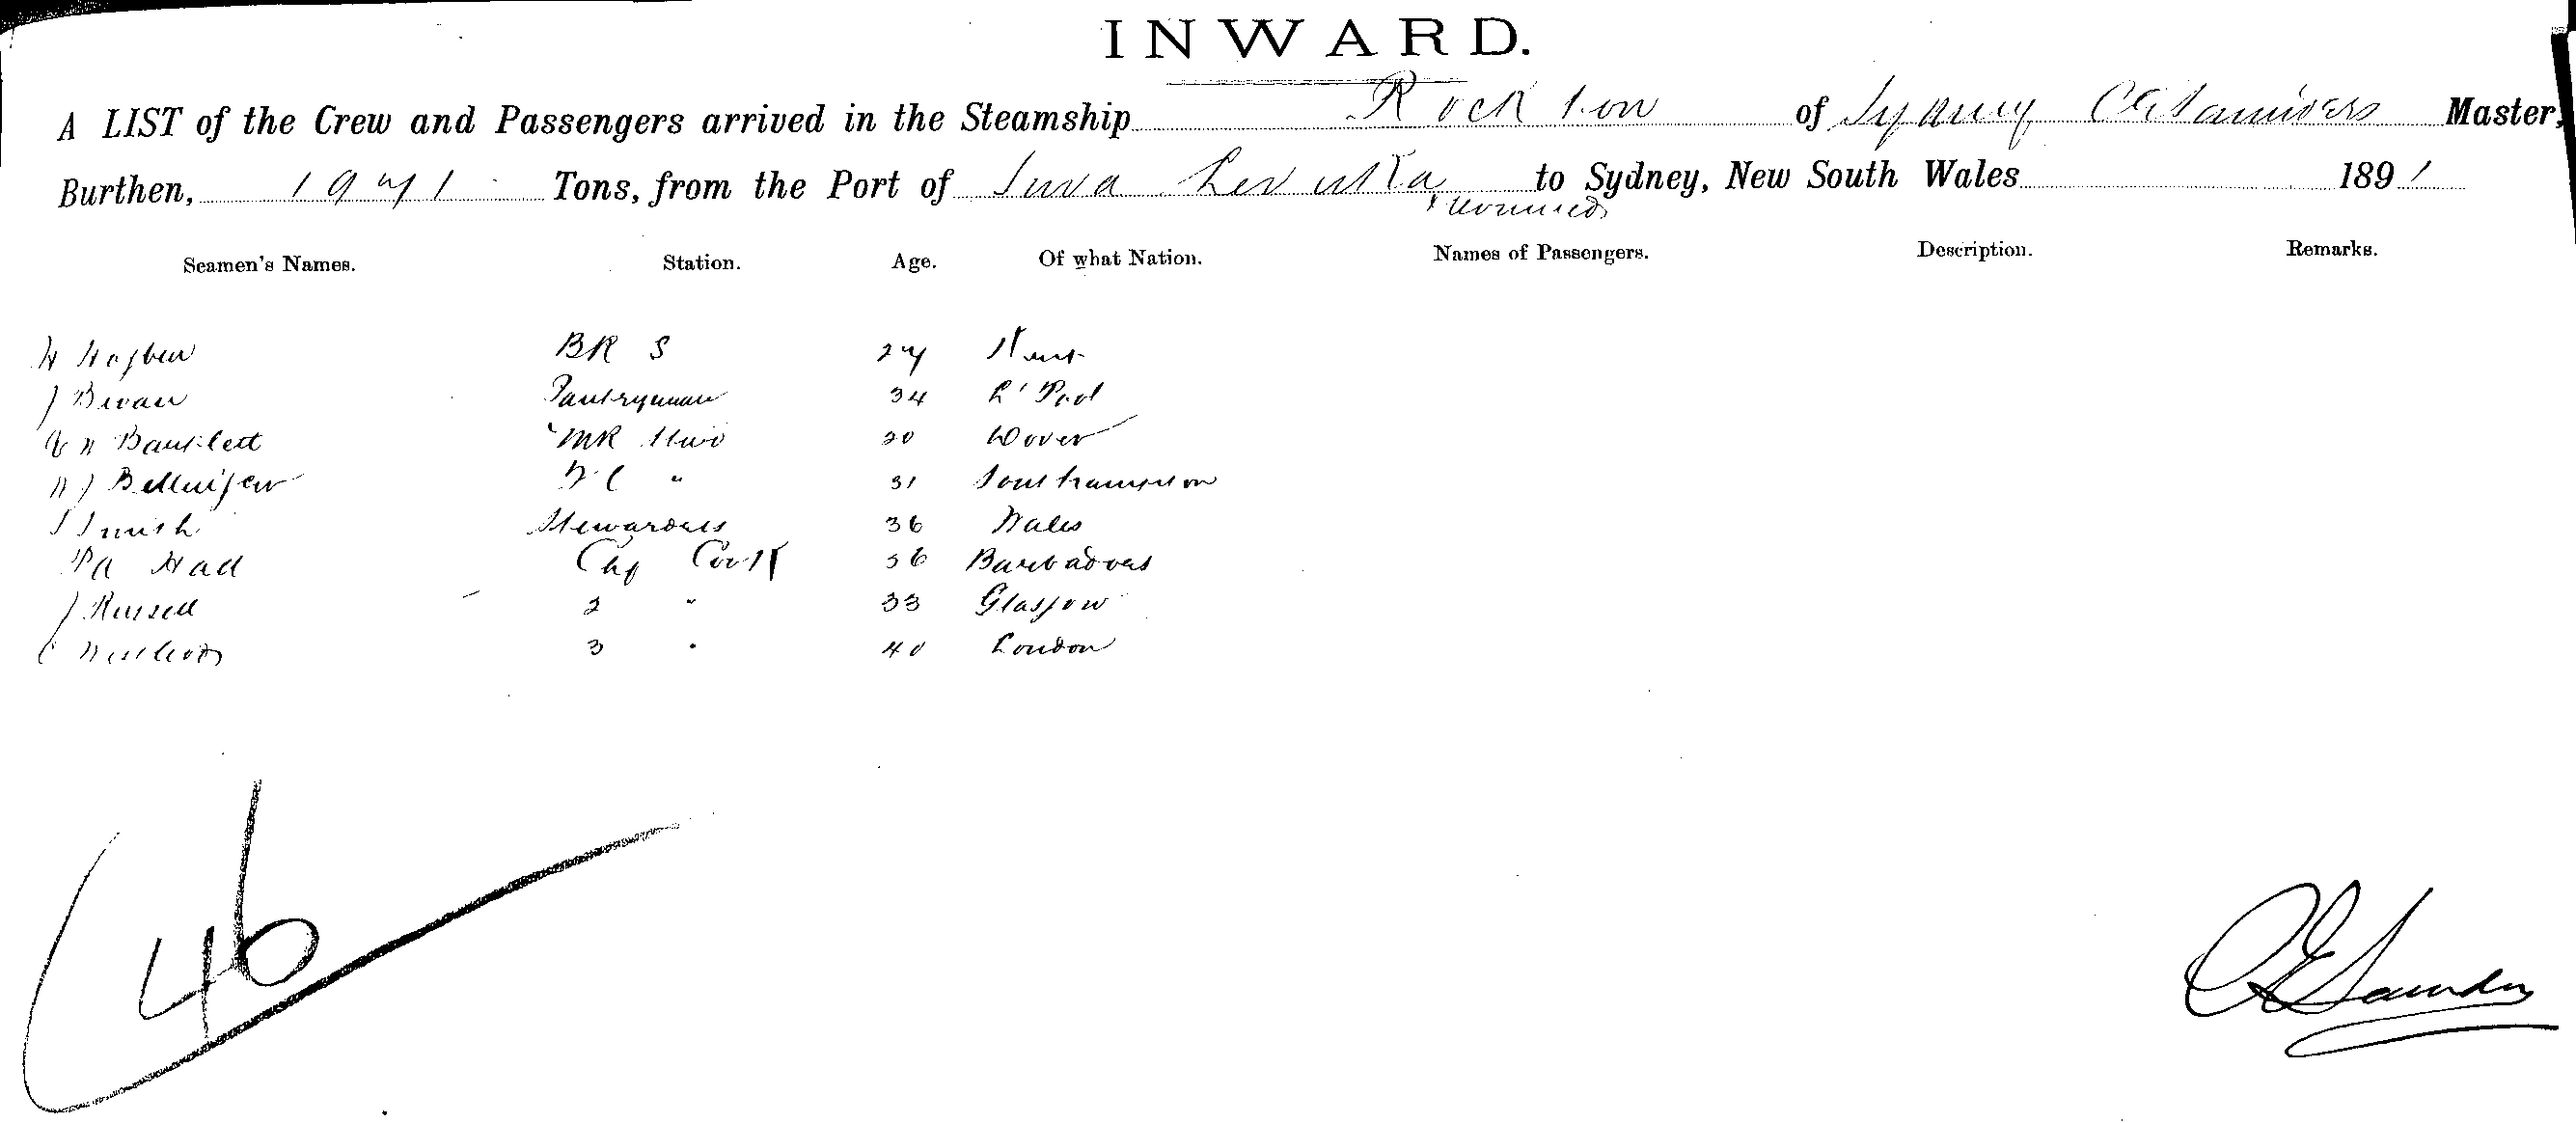 INWARD.
A LIST of the Crew and Passengers arrived in the Steamship Rockton of Sydney C E Saunders Master,
Burthen, 1971 Tons, from the Port of Suva Levuka to Sydney, New South Wales 1891
Seamen's Names. Station. Age. Of what Nation. Names of Passengers. Description. Remarks.
H Hogben BR S 27 Kent
J Bevan Pantryman 34 L'Pool
Bartlett MR Stwd 20 Dover
31 Southampton
S Smith Stewardess 36 Wales
Cook 36 Barbadoes
J Russell 2 " 33 Glasgow
C 3 " 40 London
46
C E Saunders